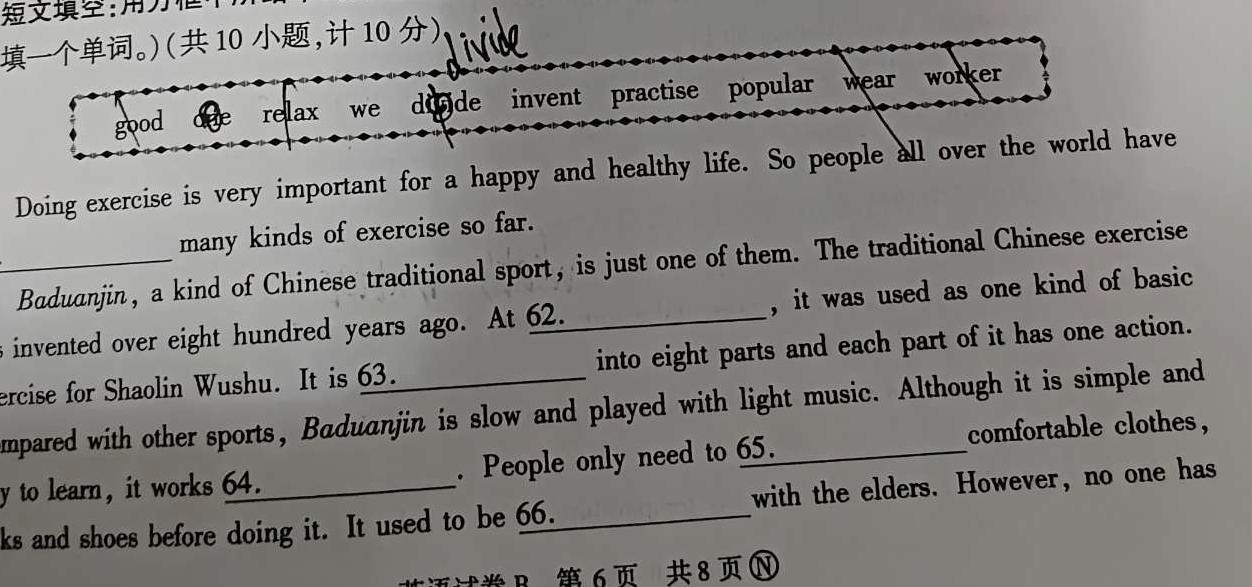 短文填空:用方框中所给
填一个单词。)(共 10 小题,计 10 分)
divide
good relax we invent practise popular wear worker
Doing exercise is very important for a happy and healthy life. So people all over the world have
many kinds of exercise so far.
Baduanjin, a kind of Chinese traditional sport, is just one of them. The traditional Chinese exercise
s invented over eight hundred years ago. At 62.____, it was used as one kind of basic
ercise for Shaolin Wushu. It is 63.____ into eight parts and each part of it has one action.
mpared with other sports, Baduanjin is slow and played with light music. Although it is simple and
y to learn, it works 64.____. People only need to 65.____ comfortable clothes,
ks and shoes before doing it. It used to be 66.____ with the elders. However, no one has
英语试卷 B 第 6 页 共 8 页 Ⓝ